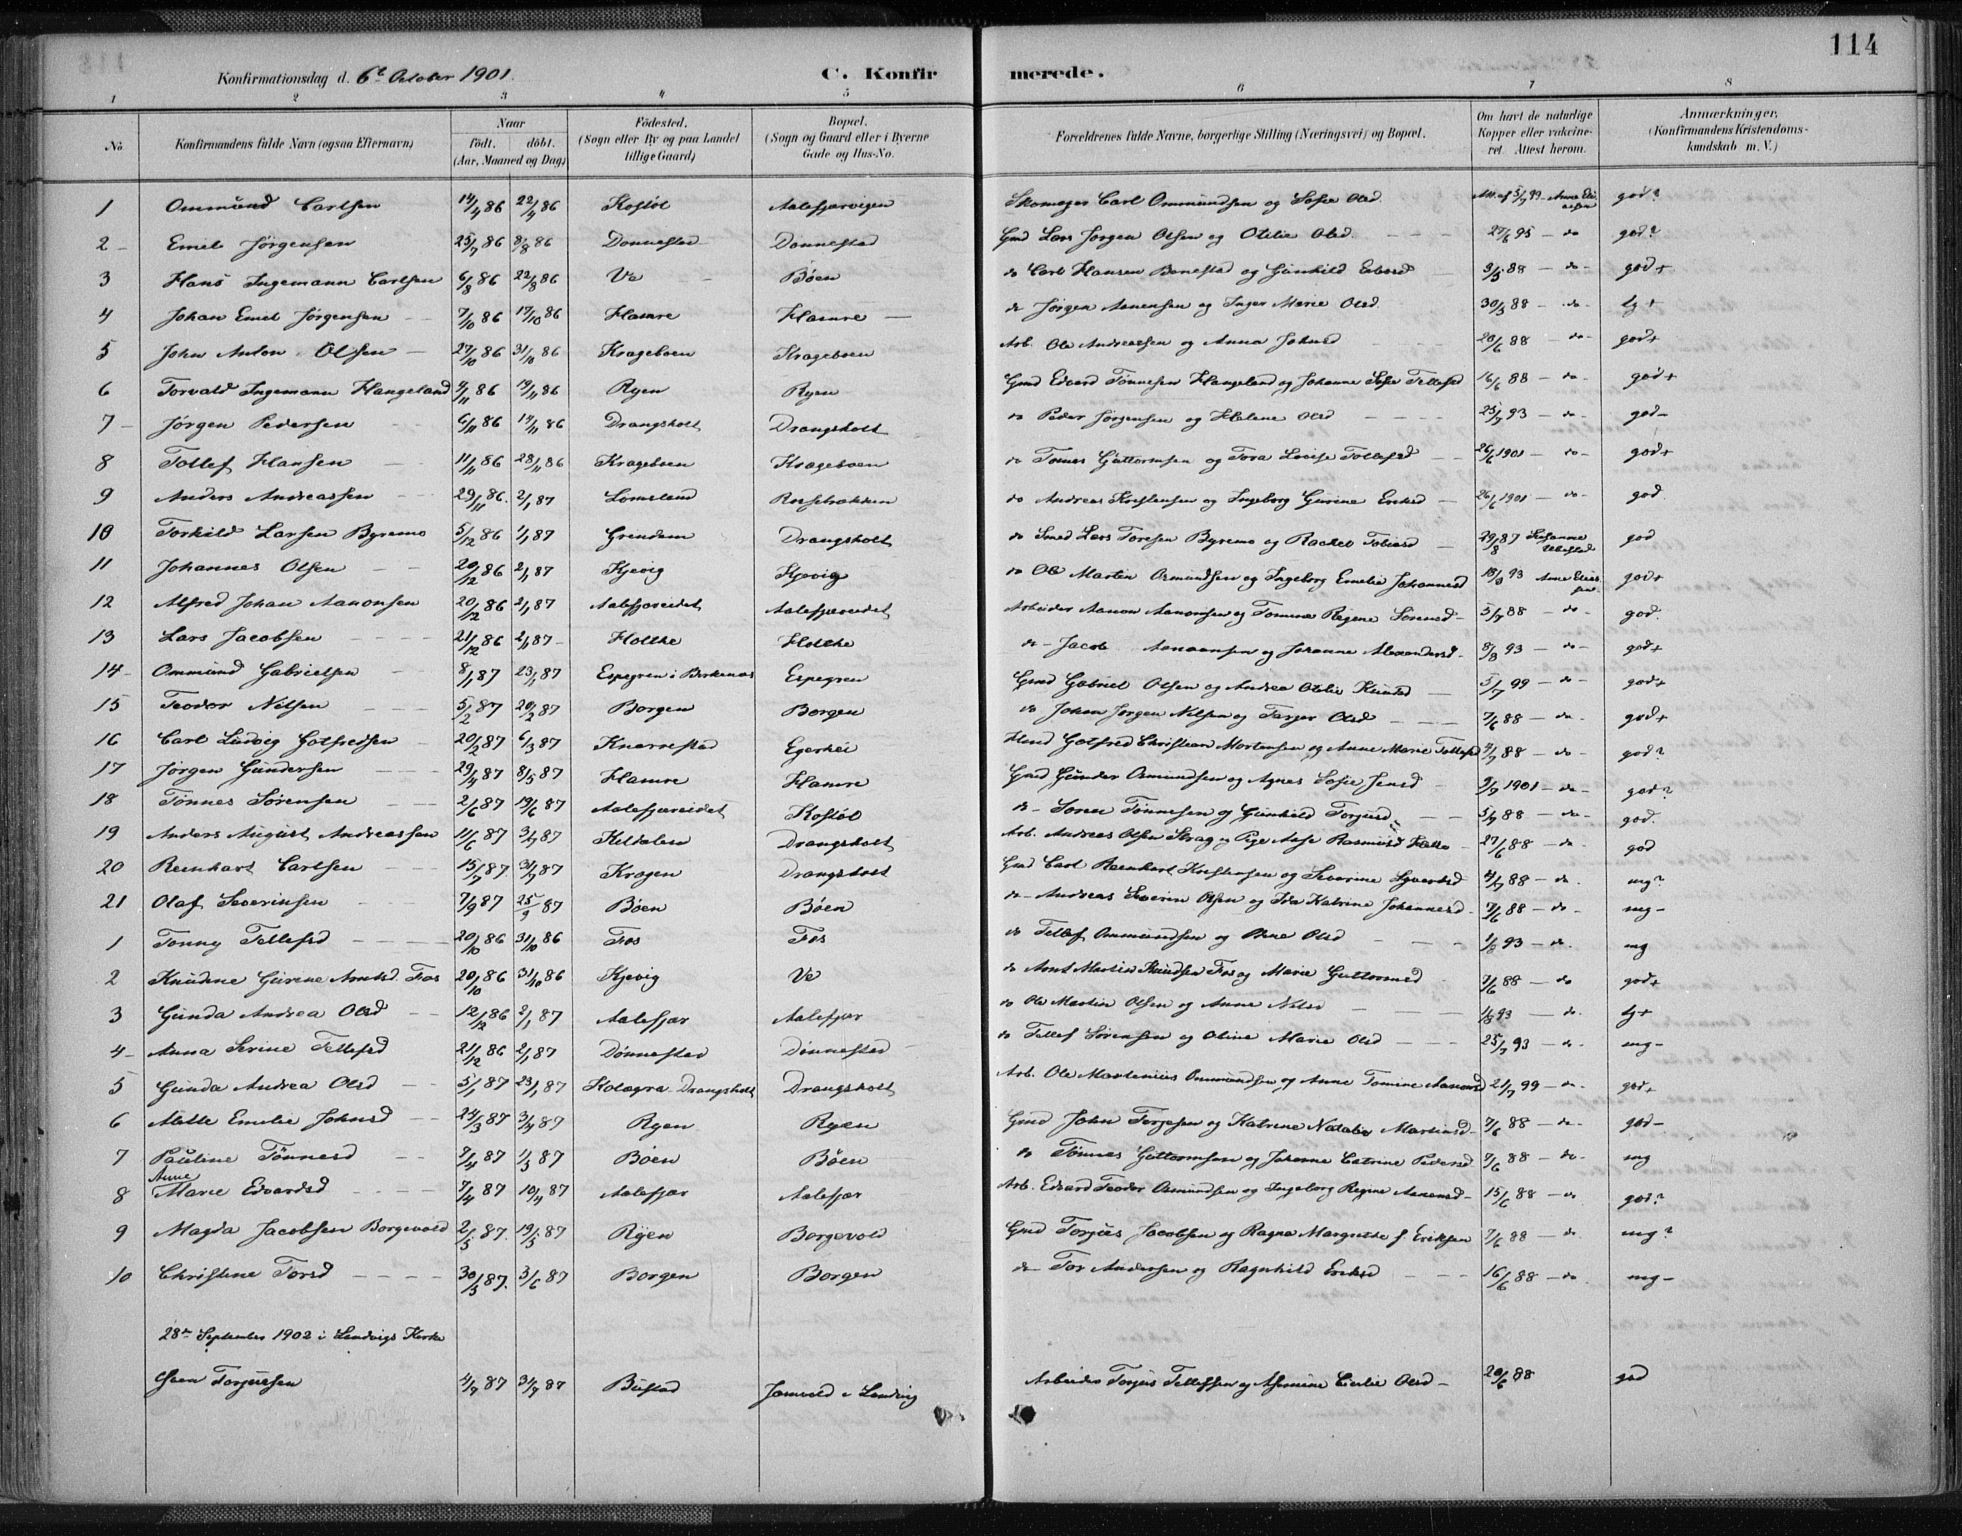 114
Konfirmationsdag d. 6t October 1901. C. Konfirmerede.
1 2 3 4 5 6 7 8
No. Konfirmandens fulde Navn (ogsaa Efternavn) Naar født. døbt. (Aar, Maaned og Dag) Fødested. (Sogn eller By og paa Landet tillige Gaard) Bopæl. (Sogn og Gaard eller i Byerne Gade og Hus-No. Forældrenes fulde Navne, borgerlige Stilling (Næringsvei) og Bopæl. Om havt de naturlige Kopper eller vakcineret. Attest herom. Anmærkninger. (Konfirmandens Kristendomskundskab m. V.)
1 Ommund Carlsen 14/4 86 22/4 86 Kostøl Aalefjærvigen Skomager Carl Ommundsen og Sofie Olsd. Att. af 5/7 99 - Anne god?
2 - Emil Jørgensen 25/7 86 8/8 86 Dønnestad Dønnestad Gmd Lars Jørgen Olsen og Otilie Olsd. 27/6 95 - do god?
3 Hans Ingemann Carlsen 6/8 86 22/8 86 Ve Bøen do Carl Hansen Bønestad og Gunhild 3/5 88 - do - god+
4 Johan Emil Jørgensen 7/10 86 17/10 86 Hamre Hamre do Jørgen Aanensen og Inger Marie Olsd. 30/5 88 - do tg+
5 John Anton Olsen 27/10 86 31/10 86 Krageboen Krageboen Arb. Ole Andreassen og Anna Johnsd 20/6 88 - do - god+
6 Torvald Ingemann Haugeland 4/11 86 14/11 86 Ryen Ryen Gmd Edvard Tønnesen Haugeland og Johanne Sofie Tellefsd 16/6 88 - do - god+
7 - Jørgen Pedersen 6/11 86 14/11 86 Drangsholt Drangsholt do Peder Jørgensen og Helene Olsd 25/7 93 - do - god-
8 Tollef Hansen 11/11 86 28/11 86 Krageboen Krageboen do Tomas Guttormsen og Tora Lovise Tollefsd 26/6 1901 - do - god+
9 Anders Andreassen 29/11 86. 2/1 87 Lomsland Rossebækken do Andreas Kristensen og Ingeborg Gurine Eriksd 26/6 1901 - do - god
10 Torkild Larsen Byremo 5/12 86 1/1 87 Grændem Drangsholt do Smed Lars Toresen Byremo og Rachel Tobiasd 29/8 87 Susanne god
11 Johannes Olsen 20/12 86 2/1 87 Kjevig Kjevig do Ole Martin Osmundsen og Ingeborg Emelie Johannesd 18/8 93 Anne god+
12 Alfred Johan Aanonsen 20/12 86 2/1 87 Aalefjæreidet Aalefjæreidet Arbeider Aanon Aanonsen og Tomine Regine 5/7 88 - do - god.
13 Lars Jacobsen 21/12 86 2/1 87 - Holthe Holthe do - Jacob Aanonsen og Johanne Alexandersd 8/8 93 - do - god+
14 - Ommund Gabrielsen 8/1 87 23/1 87 Espegren i Birkenæs Espegren Gmd Gabriel Olsen og Andrea Otelie Knudsd 5/7 99 - do - god+
15 Teodor Nilsen 5/2 87 20/2 87 Borgen Borgen do Johan Jørgen Nilsen og Targer Olsd 7/6 88 - do - god+
16 Carl Ludvig Gotfredsen 20/2 87 6/3 87 Knarrestad Egerhei Hmd Gotfred Christian Mortensen og Anne Marie Tellefsd 4/7 88 - do - god?
17 Jørgen Gundersen 29/4 87 8/5 87 Hamre Hamre Gmd Gunder Osmundsen og Agnes Sofie Jensd 9/9 1901 - do - god?
18 Tønnes Sørensen 2/6 87 19/6 87 Aalefjæreidet Kostøl do - Søren Tønnesen og Gunhild Torjusd 5/9 88 - do - god.
19 Anders August Andreassen 11/6 87 3/7 87 Kildalen Drangsholt Arb. Andreas Olsen Stray og Pige Aase Rasmusd 27/6 88 - do god
20 Reinhart Carlsen 15/7 87 31/7 87 Krogen Drangsholt Gmd Carl Reinhart Kristensen og Severine Syvertsd 4/7 88 - do. mg?
21 Olaf Severinsen 7/9 87 25/9 87 Bøen Bøen do - Andreas Severin Olsen og Ida Katrine Johannesd. 7/6 88 - do - mg-
1 Tonny Tellefsd 20/10 86 31/10 86 Fos Fos do Tellef Ommundsen og Olsd 1/8 93 - do. mg
2 Knudine Gurine Arntsd. Fos 20/10 86 31/10 86 Kjevig Ve do Arnt Martin Knudsen Fos og Marie Guttormsd 7/6 88 - do god+
3 Gunda Andrea Olsd 12/12 86 2/1 87 Aalefjær Aalefjær do Ole Martin Olsen og Anne Nilsd 1/8 93 - do. tg+
4 - Anna Serine Tellefsd 21/12 86 2/1 87 Dønnestad Dønnestad do Tellef Sørensen og Oline Marie Olsd 25/7 93 - do. mg-
5 Gunda Andrea Olsd 5/1 87 23/1 87 Drangsholt Drangsholt Arb. Ole Martenius Ommundsen og Anne Tomine Aanonsd 21/7 99 - do. god+
6 Mette Emilie Johnsd 24/3 87 3/4 87 Ryen Ryen Gmd John Terjesen og Katrine Natalie Martinsd 7/6 88 - do - god-
7 Pauline Tønnesd 7/4 87 1/5 87 Boen Bøen do Tønnes Guttormsen og Johanne Catrine Pedersd 7/6 88 - do - mg
8 Anne Marie Edvardsd 7/4 87 10/4 87 Aalefjær Aalefjær Arb. Edvard Teodor Osmundsen og Ingeborg Regine Aanensd - 15/6 88 - do god?
9 Magda Jacobsen Borgevold 2/5 87. 19/5 87 Ryen Borgevold Gmd Torjus Jacobsen og Ragna Margrethe f. Eriksen 7/6 88 - do mg?
10 Christine Torsd 30/3 87. 3/6 87 Borgen Borgen do - Tor Andersen og Ragnhild Eriksd 16/6 88 - do mg-
28de September 1902 i Landvigs Kirke
Torjusen 4/7 87 31/7 87 Bustad i Landvig Arbeider Torjus Tellefsen og Olsd - 20/6 88 god